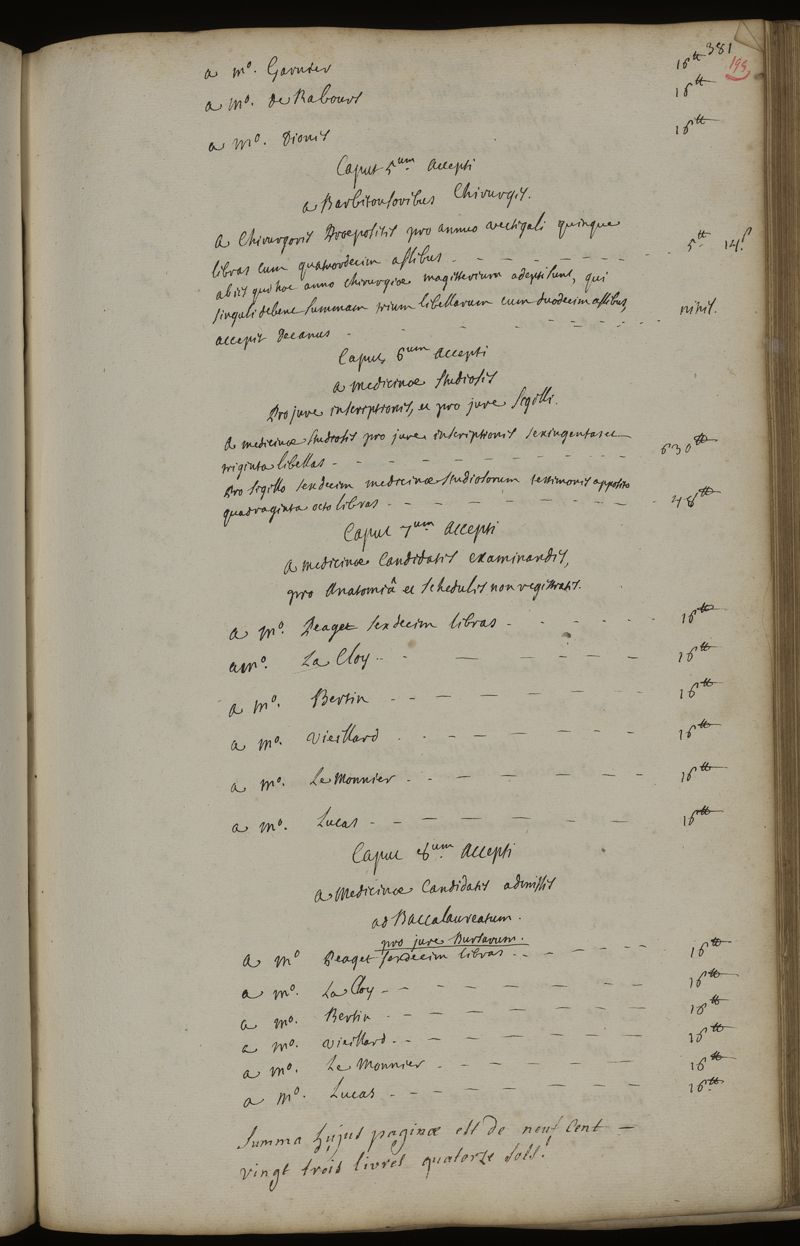 381
199
a mo. Garnier 16tt
a mo. de Rabours 16tt
a mo. Dionis 16tt
Caput 5um. Accepti
a Barbitonsoribus Chirurgis.
A Chirurgoris Proepositis pro annuo vectigali quinque
libras cum quatuordecim assibus - - - - - - - 5tt 14s
ab iis qui hoc anno chirurgiæ magisterium adepti sunt, qui
singuli debent summam trium libellarum cum duodecim assibus,
accepit Decanus - - - - - - - nihil.
Caput 6um accepti
a medicinæ studiosis
Pro jure inscriptionis, et pro jure sigilli.
A medicinæ studiosis pro jure inscriptionis sexingentas et
triginta libellas - - - - - - - - 630tt
Pro sigillo sexdecim medicinæ studiosorum testimoniis apposito
quadraginta octo libras - - - - - - - 48tt
Caput 7um Accepti
A medicinæ Candidatis examinandis,
pro Anatomiâ et schedulis non registratis.
a mo. Peaget sexdecim libras - - - - - 16tt
a mo. La Cloy - - - - - - 16tt
a mo. Bertin - - - - - - - 16tt
a mo. Vieillard - - - - - - - 16tt
a mo. Le Monnier - - - - - - - 16tt
a mo. Lucas - - - - - - - 16tt
Caput 8um. Accepti
a Medicinæ Candidatis admissis
ad Baccalaureatum.
pro jure Bursarum.
A mo Peaget sexdecim libras - - - - - - 16tt
a mo. La Cloy - - - - - - - 16tt
a mo. Bertin - - - - - - - 16tt
a mo. Vieillard - - - - - - - 16tt
a mo. Le Monnier - - - - - - 16tt
a mo. Lucas - - - - - - - 16tt
Summa hujus paginæ est de neuf cent
vingt trois livres quatorze sols.